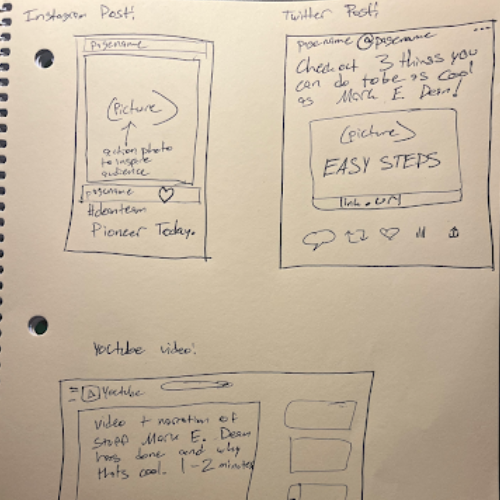 Instagram Post!
pagename
(Picture)
action photo
to inspire
audience
pagename
#deanteam
Pioneer Today.
Twitter Post!
pagename @pagename
Check out 3 things you
can do to be as cool
as Mark E. Dean!
(picture)
EASY STEPS
link.url
Youtube video!
Youtube
video + narration of
stuff Mark E. Dean
has done and why
thats cool. 1-2 minutes